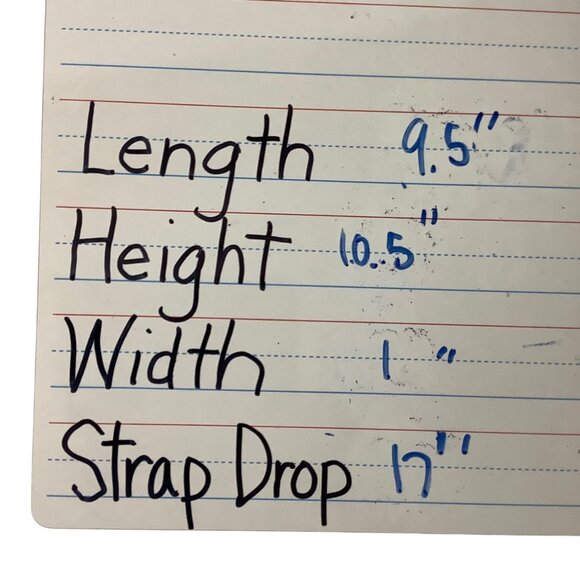 Length 9.5"
Height 10.5"
Width 1"
Strap Drop 17"